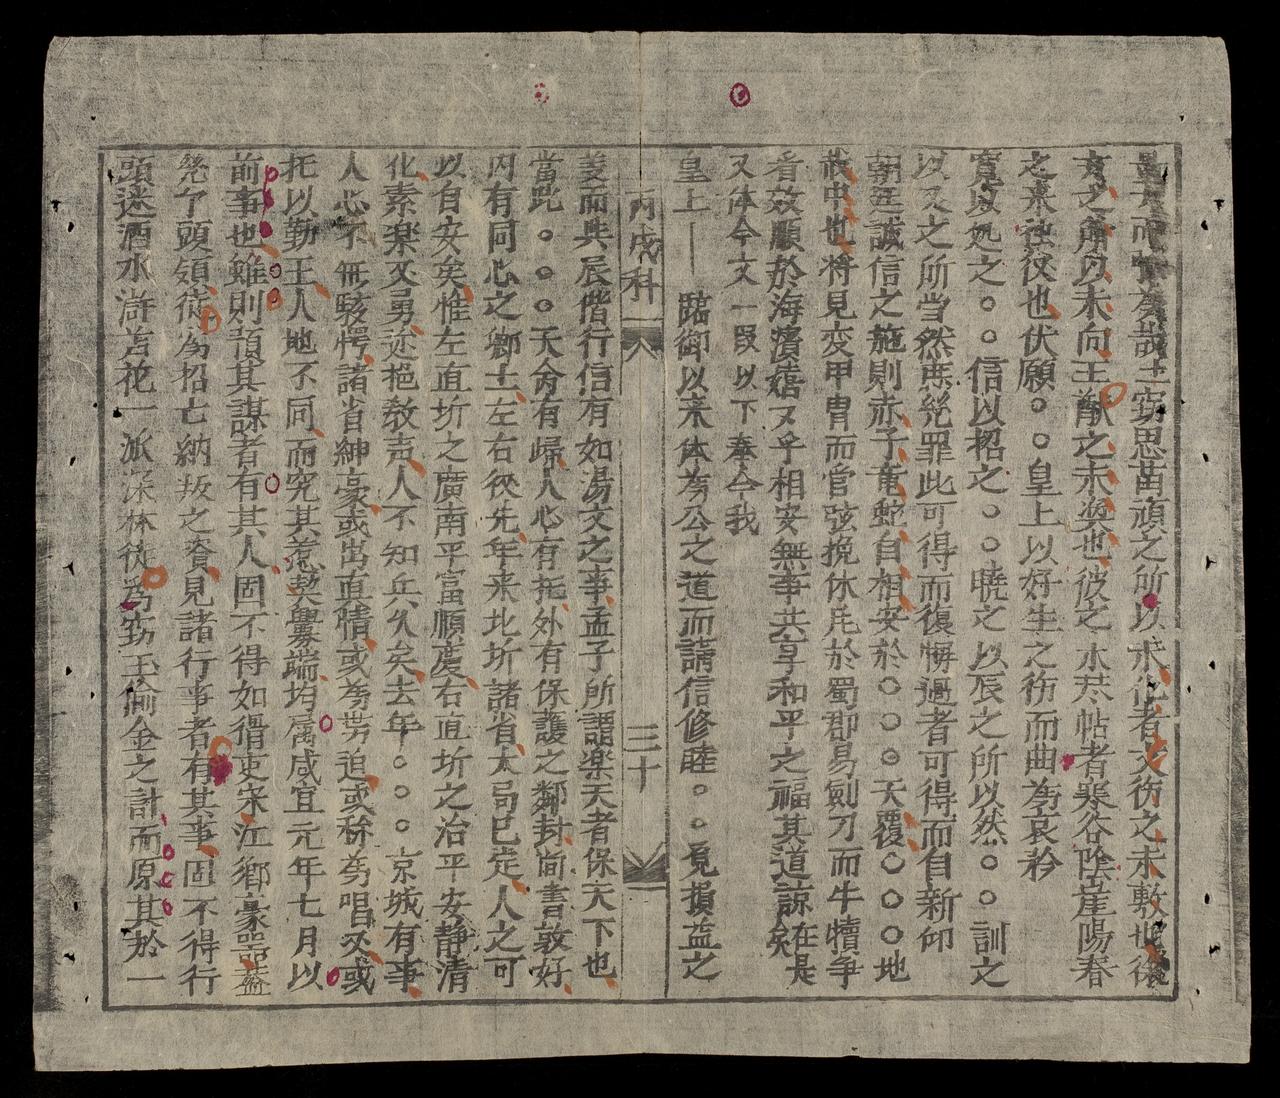 而哉窃思苗頑之所以未化者文德之未敷也徐
方之所以未向王猷之未奬也彼之水寒帖者寒谷陰崖陽春
之来社役也伏願○○皇上以好生之德而曲為哀矜
寛以処之○○信以招之○○暁之以辰之所以然○○訓之
以又之所当然無終罪此可得而復悔過者可得而自新仰
朝廷誠信之施則赤子竜蛇自相安於○○○○天覆○○○○地
載中也将見变甲冑而官弦挽休兵於蜀郡易劍刀而牛犢争
看效願於海濱嬉又乎相安無事共享和平之福其道諒在是矣
又体今文一段以下奉今我
皇上 臨御以来体為公之道而講信修睦○○覔損益之
丙戌科
三十
姜而典辰偕行信有如湯文之事孟子所謂楽天者保天下也
當此○○○○天命有歸人心有托外有保護之鄰封尚書敦好
内有同心之郷士左右從先年来北圻諸省大局已定人之可
以自安矣惟左直圻之廣南平富順慶右直圻之治平安静清
化素楽文勇迹挹教声人不知兵久矣去年○○○京城有事
人心不無駭愕諸省紳豪或出直情或為劳迫或称為唱文或
托以勤王人地不同而究其惹契釁端均属咸宜元年七月以
前事也雖則預其謀者有其人固不得如猾吏宋江郷豪晁蓋
凭个頭領銜為招亡納叛之資見諸行事者有其事固不得行
頭迷酒水滸言花一派深林徒為窃玉偷金之計而原其於一